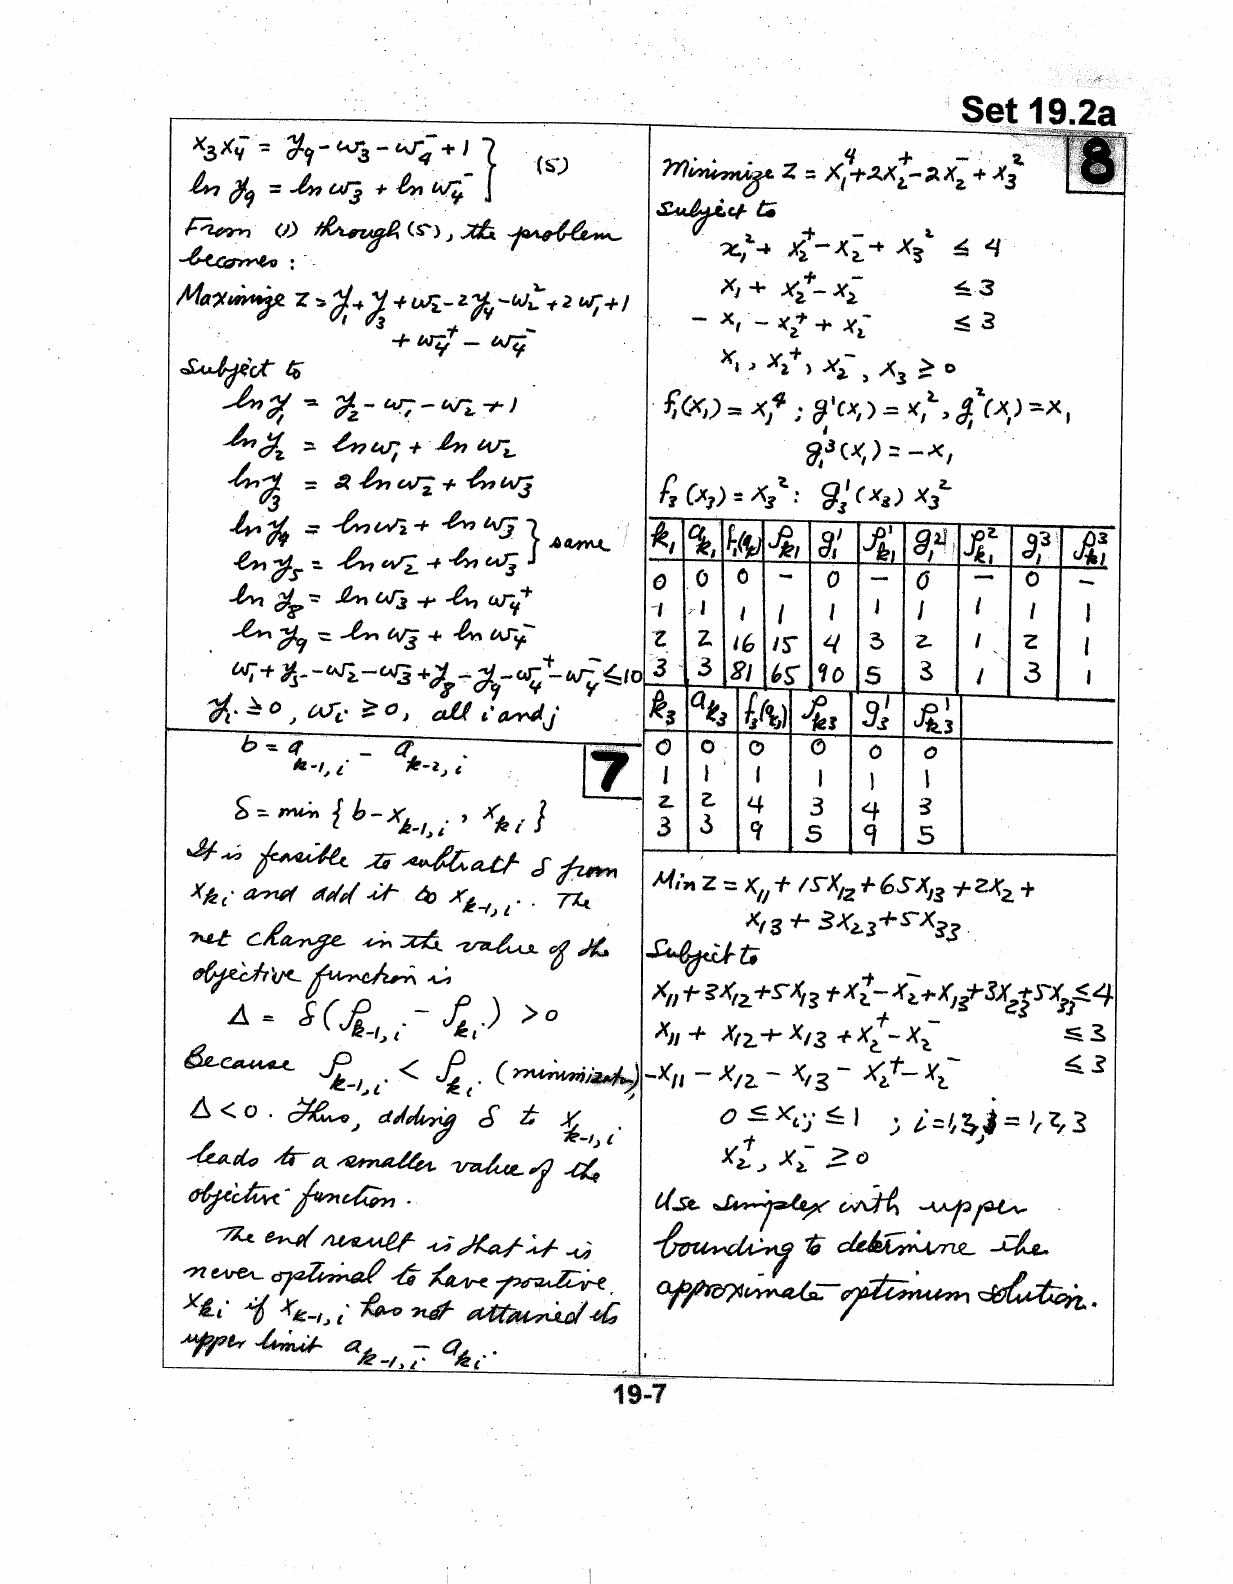 Set 19.2a
x₃x₄⁻ = y₉ - w₃ - w₄⁻ + 1 } (5)
ln y₉ = ln w₃ + ln w₄⁻
From (1) through (5), the problem
becomes :
Maximize z = y₁ + y₃ + w₂ - 2y₄ - w₂² + 2w₁ + 1
+ w₄⁺ - w₄⁻
Subject to
ln y₁ = y₂ - w₁ - w₂ + 1
ln y₂ = ln w₁ + ln w₂
ln y₃ = 2 ln w₂ + ln w₃
ln y₄ = ln w₂ + ln w₃ } same
ln y₅ = ln w₂ + ln w₃
ln y₈ = ln w₃ + ln w₄⁺
ln y₉ = ln w₃ + ln w₄⁻
w₁ + y₅ - w₂ - w₃ + y₈ - y₉ - w₄⁺ - w₄⁻ ≤ 10
yᵢ ≥ 0, wᵢ ≥ 0, all i and j
7
b = a_{k-1,i} - a_{k-2,i}
δ = min { b - x_{k-1,i} , x_{ki} }
It is feasible to subtract δ from
x_{ki} and add it to x_{k-1,i}. The
net change in the value of the
objective function is
Δ = δ(ρ_{k-1,i} - ρ_{ki}) > 0
Because ρ_{k-1,i} < ρ_{ki} (minimization),
Δ < 0. Thus, adding δ to x_{k-1,i}
leads to a smaller value of the
objective function.
The end result is that it is
never optimal to have positive
x_{ki} if x_{k-1,i} has not attained its
upper limit a_{k-1,i} - a_{ki}.
8
Minimize z = x₁⁴ + 2x₂⁺ - 2x₂⁻ + x₃²
subject to
x₁² + x₂⁺ - x₂⁻ + x₃² ≤ 4
x₁ + x₂⁺ - x₂⁻ ≤ 3
- x₁ - x₂⁺ + x₂⁻ ≤ 3
x₁, x₂⁺, x₂⁻, x₃ ≥ 0
f₁(x₁) = x₁⁴ ; g₁¹(x₁) = x₁², g₁²(x₁) = x₁
g₁³(x₁) = -x₁
f₃(x₃) = x₃² : g₃¹(x₃) x₃²
k₁ a_{k1} f₁(a_{k1}) ρ_{k1} g₁¹ ρ¹_{k1} g₁² ρ²_{k1} g₁³ ρ³_{k1}
0 0 0 - 0 - 0 - 0 -
1 1 1 1 1 1 1 1 1 1
2 2 16 15 4 3 2 1 2 1
3 3 81 65 90 5 3 1 3 1
k₃ a_{k3} f₃(a_{k3}) ρ_{k3} g₃¹ ρ¹_{k3}
0 0 0 0 0 0
1 1 1 1 1 1
2 2 4 3 4 3
3 3 9 5 9 5
Min z = x₁₁ + 15x₁₂ + 65x₁₃ + 2x₂ +
x₁₃ + 3x₂₃ + 5x₃₃.
Subject to
x₁₁ + 3x₁₂ + 5x₁₃ + x₂⁺ - x₂⁻ + x₁₃ + 3x₂₃ + 5x₃₃ ≤ 4
x₁₁ + x₁₂ + x₁₃ + x₂⁺ - x₂⁻ ≤ 3
-x₁₁ - x₁₂ - x₁₃ - x₂⁺ - x₂⁻ ≤ 3
0 ≤ x_{ij} ≤ 1 ; i = 1,3, j = 1, 2, 3
x₂⁺, x₂⁻ ≥ 0
Use simplex with upper
bounding to determine the
approximate optimum solution.
19-7